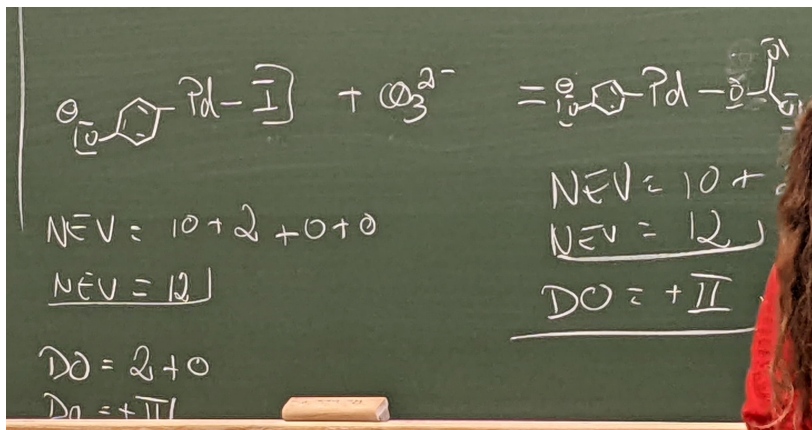 ⊖ |O̲ Pd – I] + CO₃²⁻ = ⊖ |O̲ Pd – O̲ O|
NEV = 10 + 2 + 0 + 0
NEV = 12
DO = 2 + 0
DO = + II
NEV = 10 +
NEV = 12
DO = + II